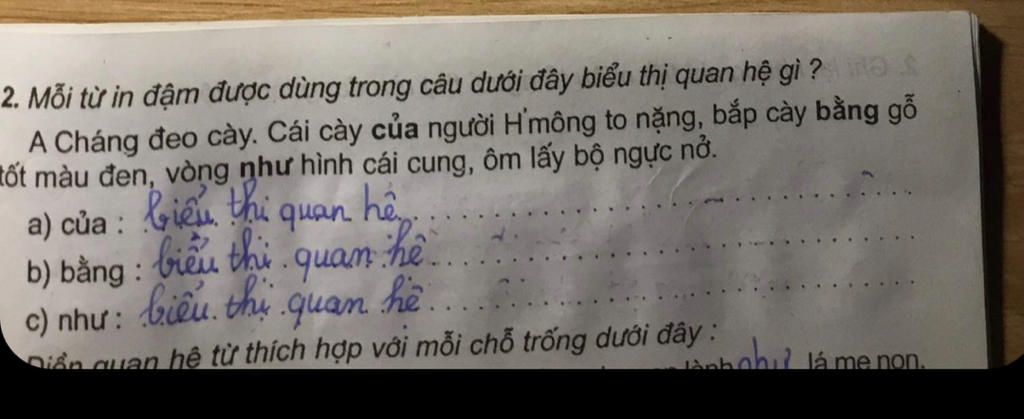 2. Mỗi từ in đậm được dùng trong câu dưới đây biểu thị quan hệ gì ?
A Cháng đeo cày. Cái cày của người H'mông to nặng, bắp cày bằng gỗ
tốt màu đen, vòng như hình cái cung, ôm lấy bộ ngực nở.
a) của : biểu thị quan hê
b) bằng : biểu thị quan hê
c) như : biểu thị quan hê
Điền quan hệ từ thích hợp với mỗi chỗ trống dưới đây :
lành như lá me non.